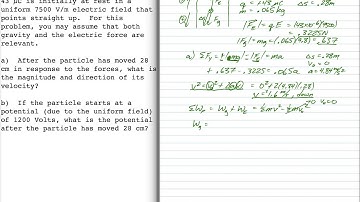 43 μC is initially at rest in a
uniform 7500 V/m electric field that
points straight up. For this
problem, you may assume that both
gravity and the electric force are
relevant.
a) After the particle has moved 28
cm in response to the forces, what is
the magnitude and direction of its
velocity?
b) If the particle starts at a
potential (due to the uniform field)
of 1200 Volts, what is the potential
after the particle has moved 28 cm?
Δs = .28m
m = .065 kg
|F_E| = qE =
|F_g| = mg = (.065)(9.8) = .637
a) ΣF_y = |F_g| - |F_E| = ma
+.637 - .3225 = .065a
Δs = .28m
v_0 = 0
a = 4.84 m/s²
v² = v_0² + 2aΔs = 0² + 2(4.84)(.28)
v = 1.6 m/s, down
ΣW = W_g + W_E = ½mv² - ½mv_0²
W_g =